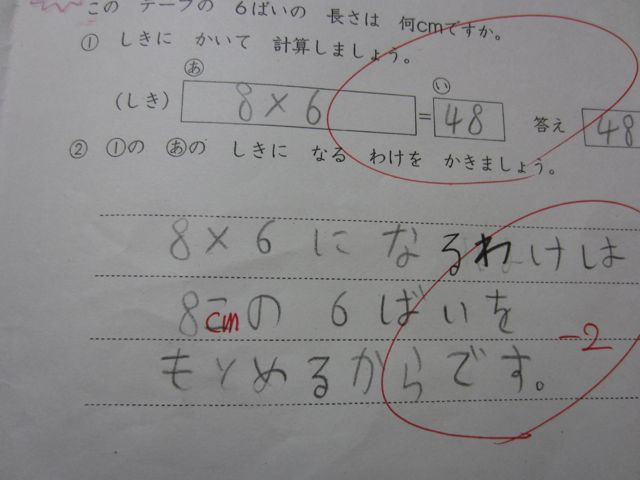 この テープの 6ばいの 長さは 何cmですか。
① しきに かいて 計算しましょう。
あ い
(しき) 8×6 = 48 答え 48
② ①の あの しきに なる わけを かきましょう。
8×6になるわけは
8cmの 6ばいを
もとめるからです。
-2